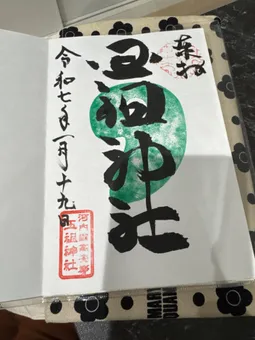 奉拝
玉祖神社
令和七年一月十九日
玉祖神社
MAR
QUAN